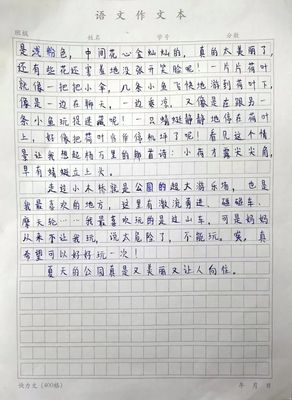 语文作文本
班级 姓名 学号 分数
是浅粉色，中间花心金灿灿的，真的太美丽了，
还有些花还害羞地没张开笑脸呢！一片片荷叶
就像一把把小伞，几条小鱼飞快地游到荷叶下，
像是一边在聊天，一边乘凉，又像是在跟另一
条小鱼玩捉迷藏呢！一只蜻蜓静静地停在荷叶
上，好像把荷叶当作停机坪了呢！看见这个情
景让我想起杨万里的那首诗：小荷才露尖尖角，
早有蜻蜓立上头。
走过小木桥就是公园的超大游乐场，也是
我最喜欢的地方，这里有激流勇进、碰碰车、
摩天轮……我最喜欢玩的是过山车，可是妈妈
从来不让我玩，说太危险了，不能玩。唉，真
希望可以好好玩一次！
夏天的公园真是又美丽又让人向往。
作文(400格) 年 月 日